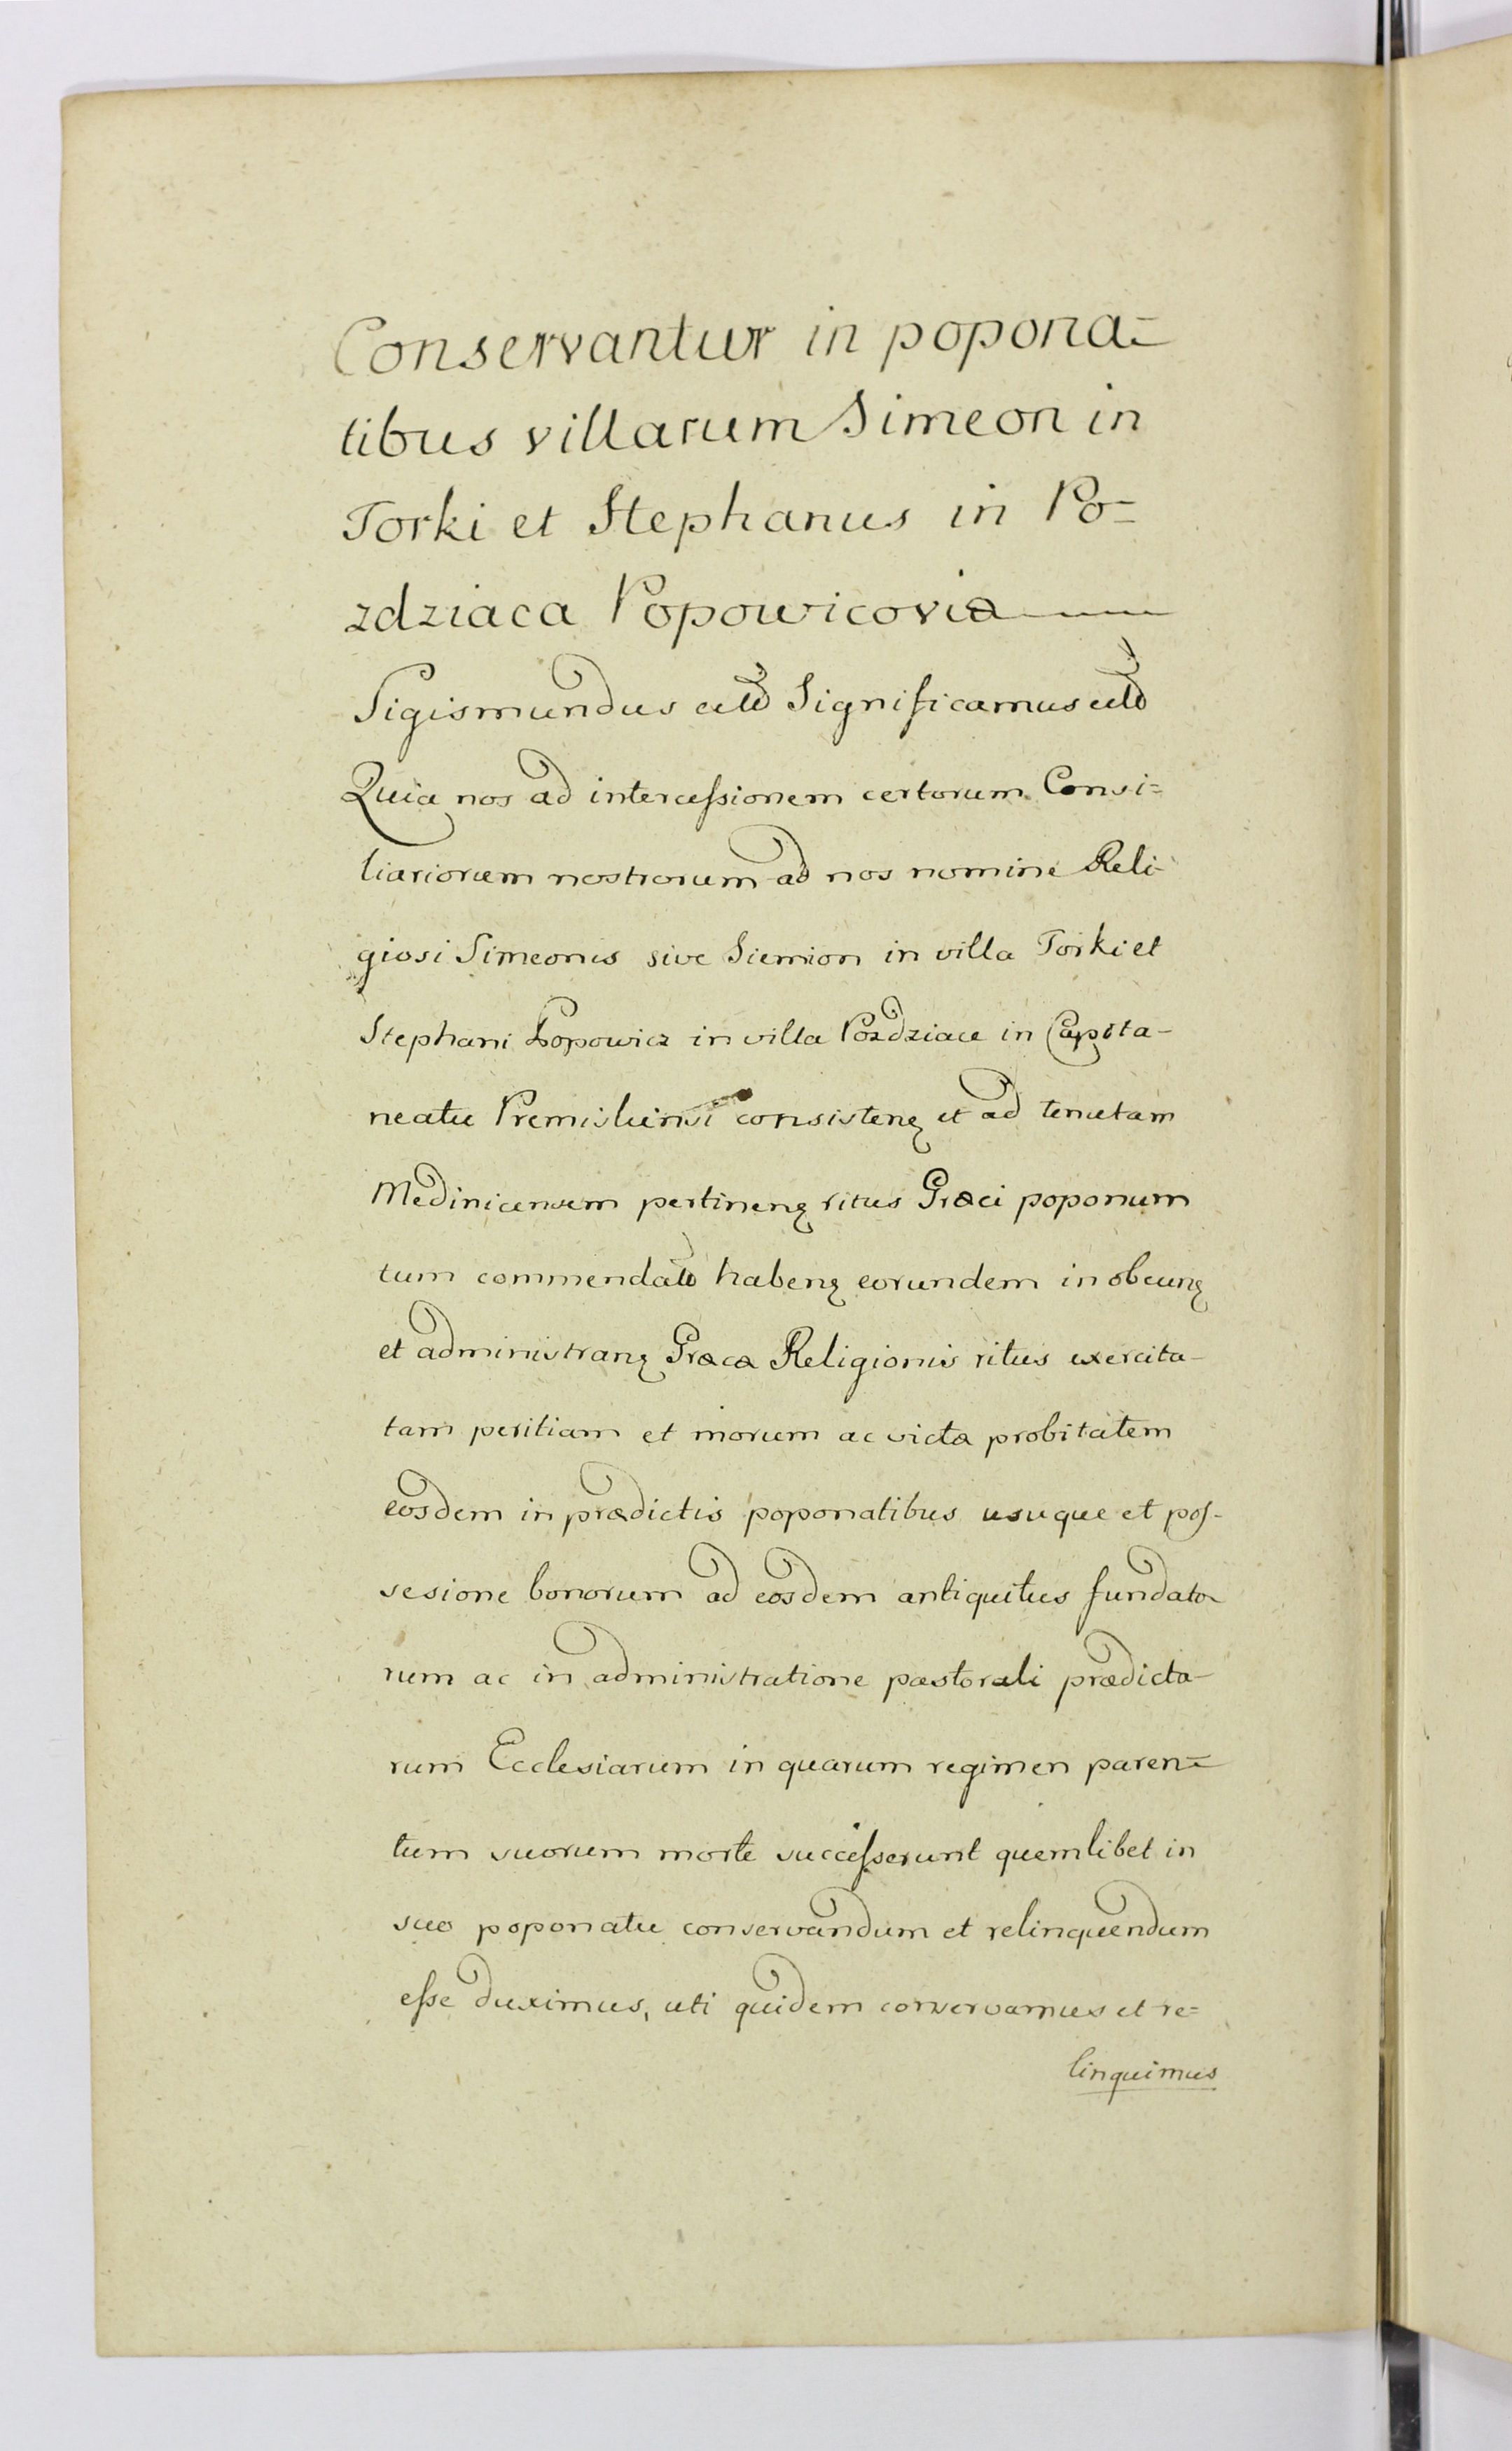 Conservantur in popona=
tibus villarum Simeon in
Torki et Stephanus in Po=
zdziaca Popowicovia
Sigismundus Significamus
Quia nos ad intercessionem certorum Consi=
liariorum nostrorum ad nos nomine Reli-
giosi Simeonis sive Siemion in villa Torki et
Stephani Popowicz in villa Pozdziace in Capita-
neatu Premisliensi consisten et ad tenutam
Medinicensem pertinen ritus Græci poponum
tum commendat haben eorundem in obeun
et administran Græcæ Religionis ritus exercita-
tam peritiam et morum ac victæ probitatem
eosdem in prædictis poponatibus usuque et pos-
sesione bonorum ad eosdem antiquitus fundato-
rum ac in administratione pastorali prædicta-
rum Ecclesiarum in quarum regimen paren=
tum suorum morte successerunt quemlibet in
suo poponatu conservandum et relinquendum
esse duximus, uti quidem conservamus et re=
linquimus